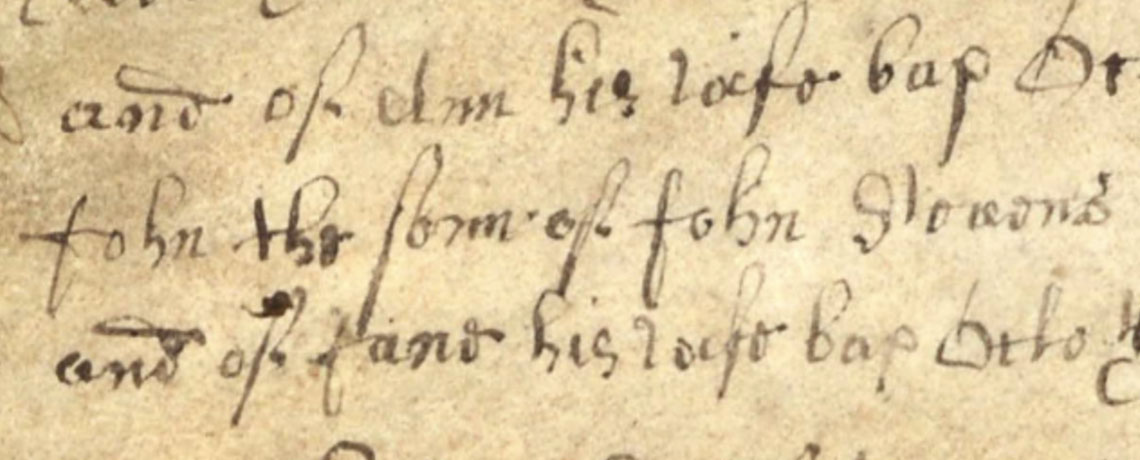 and of Ann his wife bap Oct
John the sonn of John
and of Jane his wife bap Octo